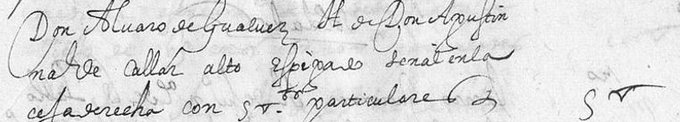 Don Alvaro de Gualvez H de Don Agustin
nal de Callar alto Espigado señal en la
ceja derecha con 5 tros particulares 5 T